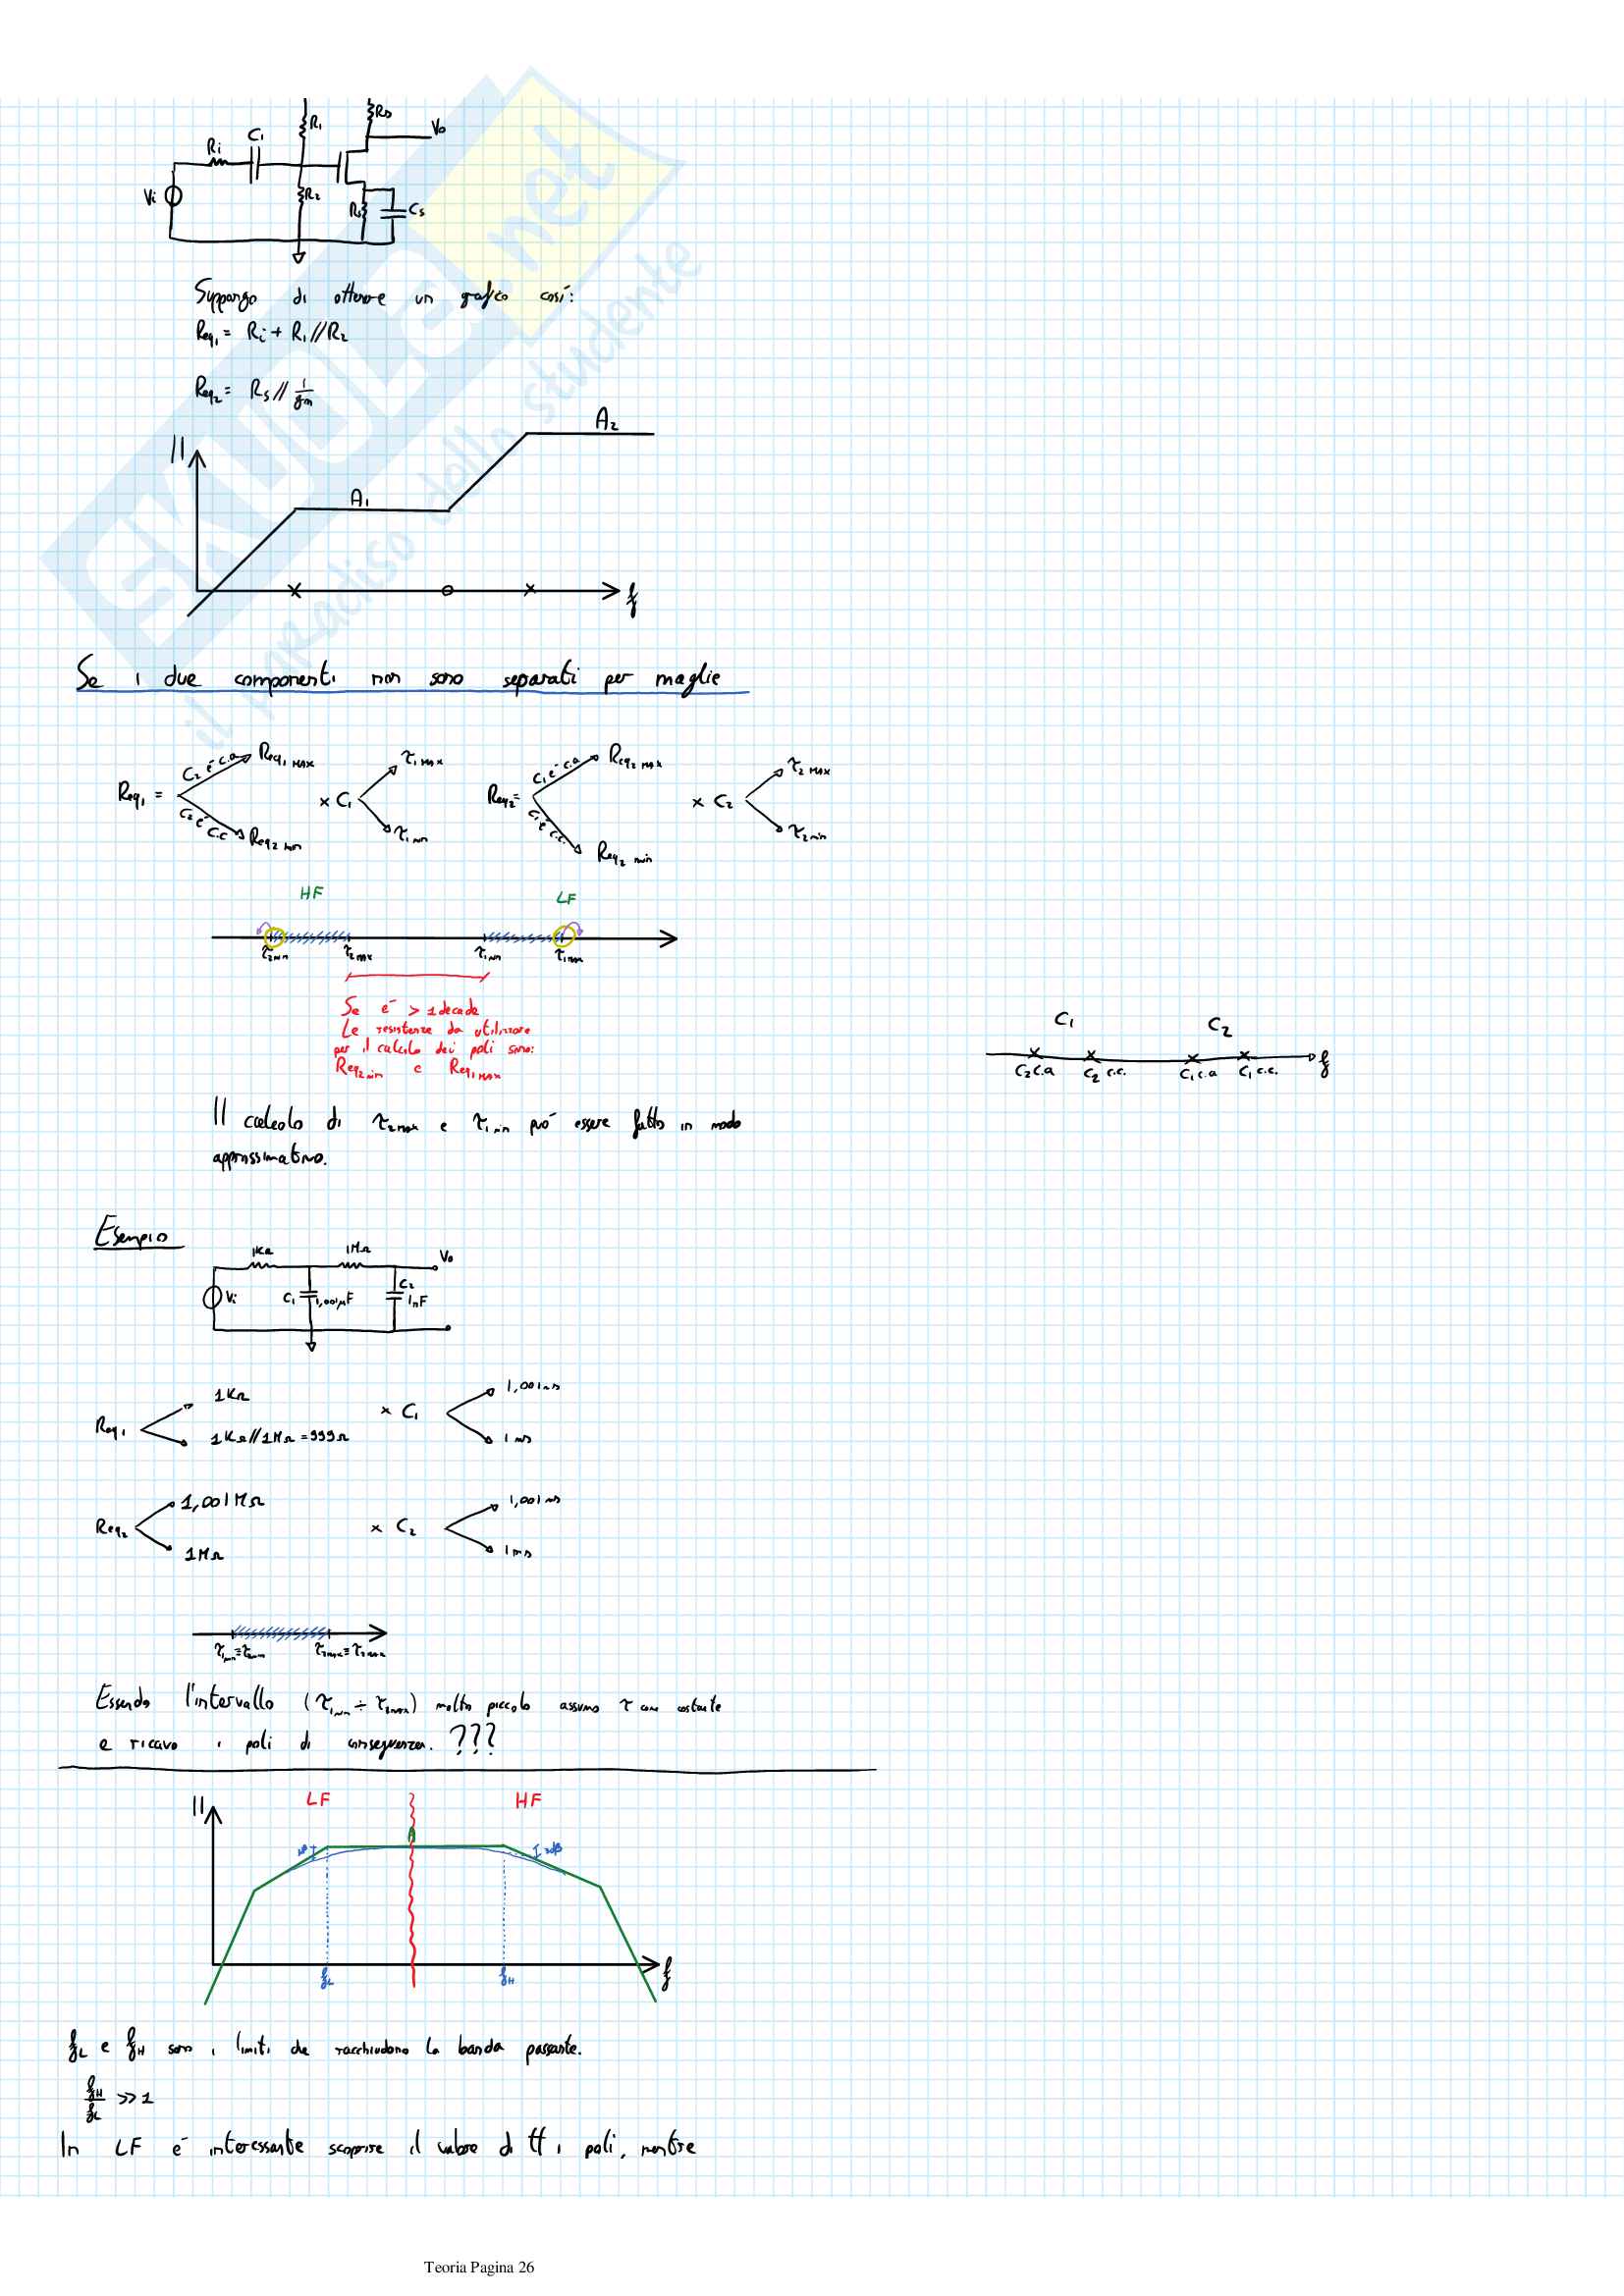 R₁
R_D
V₀
C₁
Ri
Vi
R₂
Rs
Cs
Suppongo di ottenere un grafico così:
Req₁ = Ri + R₁//R₂
Req₂ = Rs // 1/gm
||
A₁
A₂
f
Se i due componenti non sono separati per maglie
Req₁ =
C₂ è c.a
Req₁ MAX
C₂ è c.c
Req₂ min
× C₁
τ₁ MAX
τ₁ min
Req₂ =
C₁ è c.a
Req₂ MAX
C₁ è c.c.
Req₂ min
× C₂
τ₂ MAX
τ₂ min
HF
LF
τ₂ min
τ₂ MAX
τ₁ min
τ₁ max
Se è > 1 decade
Le resistenze da utilizzare
per il calcolo dei poli sono:
Req₂ min e Req₁ MAX
C₁
C₂
C₂ c.a
C₂ c.c.
C₁ c.a
C₁ c.c.
f
Il calcolo di τ₂ max e τ₁ min può essere fatto in modo
approssimativo.
Esempio
1KΩ
1MΩ
V₀
Vi
C₁
1,001μF
C₂
1nF
Req₁
1KΩ
1KΩ//1MΩ = 999Ω
× C₁
1,001ms
1ms
Req₂
1,001MΩ
1MΩ
× C₂
1,001ms
1ms
τ₁ min = τ₂ min
τ₂ max = τ₂ max
Essendo l'intervallo (τ₁ min ÷ τ₂ max) molto piccolo assumo τ come costante
e ricavo i poli di conseguenza. ???
||
LF
HF
A
3dB
f_L
f_H
f
f_L e f_H sono i limiti che racchiudono la banda passante.
f_H/f_L >> 1
In LF è interessante scoprire il valore di tt i poli, mentre
Teoria Pagina 26
SKUOLA.net
il paradiso dello studente